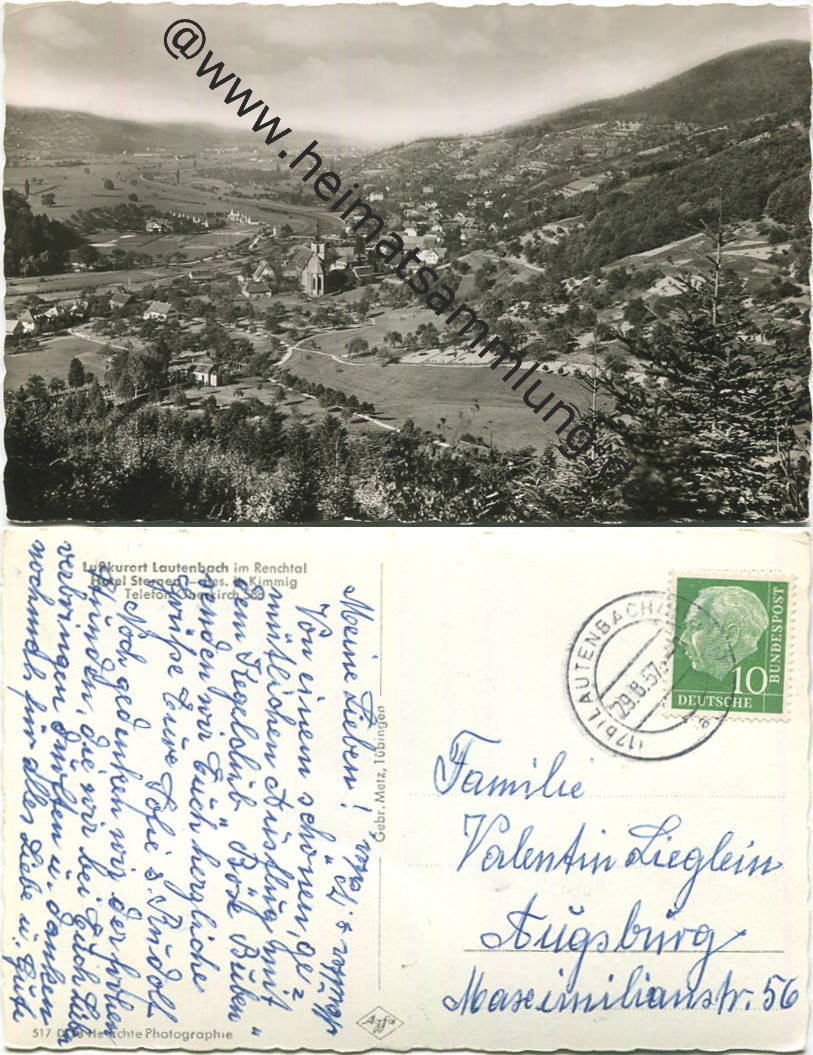 @www.heimatsammlung.de
Luftkurort Lautenbach im Renchtal
Hotel Sternen – Bes. Kimmig
Telefon Oberkirch 388
Meine Lieben!
Von einem schönen, ge=
mütlichen Ausflug mit
dem Kegelclub "Böse Buben"
senden wir Euch herzliche
Grüße Eure Sofie & Rudolf
Noch gedenken wir der frohen
Stunden, die wir bei Euch Lieben
verbringen durften u. danken
nochmals für alles Liebe u. Gute
517 Echte Photographie
Gebr. Metz, Tübingen
Agfa
(17b) LAUTENBACH
29.8.57
a
10
DEUTSCHE
BUNDESPOST
Familie
Valentin Lieglein
Augsburg
Maximilianstr. 56